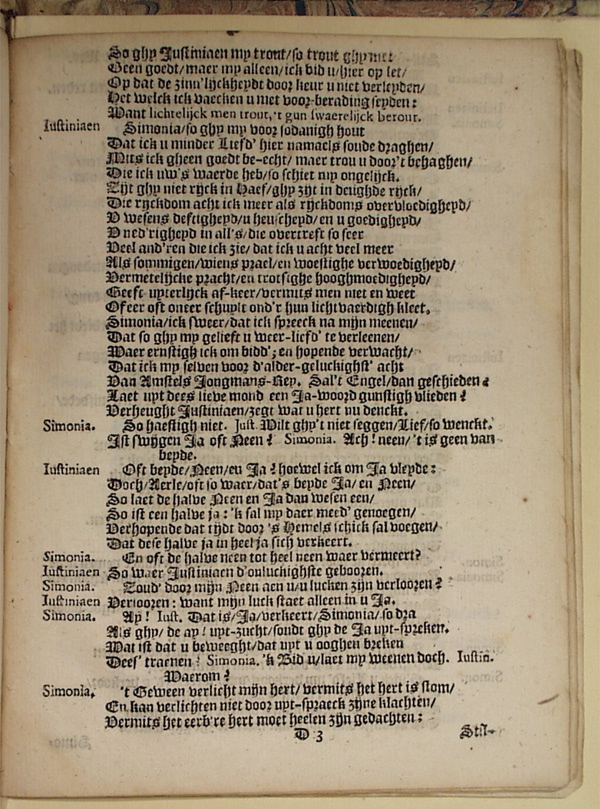 So ghy Justiniaen my trout/so trout ghy niet
Geen goedt/maer my alleen/ick bid u/hier op let/
Op dat de zinn'lijckheydt door keur u niet verleyden/
Het welck ick vaecken u met voor-berading seyden:
Want lichtelijck men trout,'t gun swaerelijck berout.
Iustiniaen Simonia/so ghy my voor sodanigh hout
Dat ick u minder Liefd' hier namaels soude draghen/
Mits ick gheen goedt be-echt/ maer trou u door't behaghen/
Die ick uw's waerde heb/so schiet my ongelijck.
Zijt ghy niet rijck in Haef/ghy zijt in deughde rijck/
Die rijckdom acht ick meer als rijckdoms overvloedigheyd/
V wesens deftigheyd/u heuscheyd/en u goedigheyd/
V ned'righeyd in all's/die overtreft so seer
Veel and'ren die ick zie/ dat ick u acht veel meer
Als sommigen/wiens prael/en woestighe verwoedigheyd/
Vermetelijcke pracht/en trotsighe hooghmoedigheyd/
Geeft uyterlijck af-keer/vermits men niet en weet
Of eer oft oneer schuylt ond'r hun lichtvaerdigh kleet.
Simonia/ick sweer/dat ick spreeck na mijn meenen/
Dat so ghy my gelieft u weer-liefd' te verleenen/
Waer ernstigh ick om bidd'; en hopende verwacht/
Dat ick my selven voor d'alder-geluckighst' acht
Van Amstels Jongmans-Rey. Sal't Engel/dan geschieden?
Laet uyt dees lieve mond een Ja-woord gunstigh vlieden?
Verheught Justiniaen/zegt wat u hert nu denckt.
Simonia. So haestigh niet. Just. Wilt ghy't niet seggen/Lief/so wenckt.
Ist swijgen Ja oft Neen? Simonia. Ach! neen/'t is geen van
beyde.
Iustiniaen Oft beyde/Neen/en Ja? hoewel ick om Ja vleyde:
Doch/Aerle/oft so waer/dat's beyde Ja/en Neen/
So laet de halve Neen en Ja dan wesen een/
So ist een halve ja: 'k sal my daer meed' genoegen/
Verhopende dat tijdt door 's Hemels schick sal voegen/
Dat dese halve ja in heel ja sich verkeert.
Simonia. En oft de halve neen tot heel neen waer vermeert?
Iustiniaen So waer Justiniaen d'onluckighste gebooren.
Simonia. Zoud' door mijn Neen aen u/u lucken zijn verlooren?
Iustiniaen Verlooren: want mijn luck staet alleen in u Ja.
Simonia. Ay! Iust. Dat is/Ja/verkeert/Simonia/so dra
Als ghy/ de ay! uyt-zucht/soudt ghy de Ja uyt-spreken.
Wat ist dat u beweeght/dat uyt u ooghen breken
Dees' traenen? Simonia. 'k Bid u/laet my weenen doch. Iustin.
Waerom?
Simonia. 't Geween verlicht mijn hert/vermits het hert is stom/
En kan verlichten niet door uyt-spraeck zijne klachten/
Vermits het eerb're hert moet heelen zijn gedachten:
D 3 Stil-